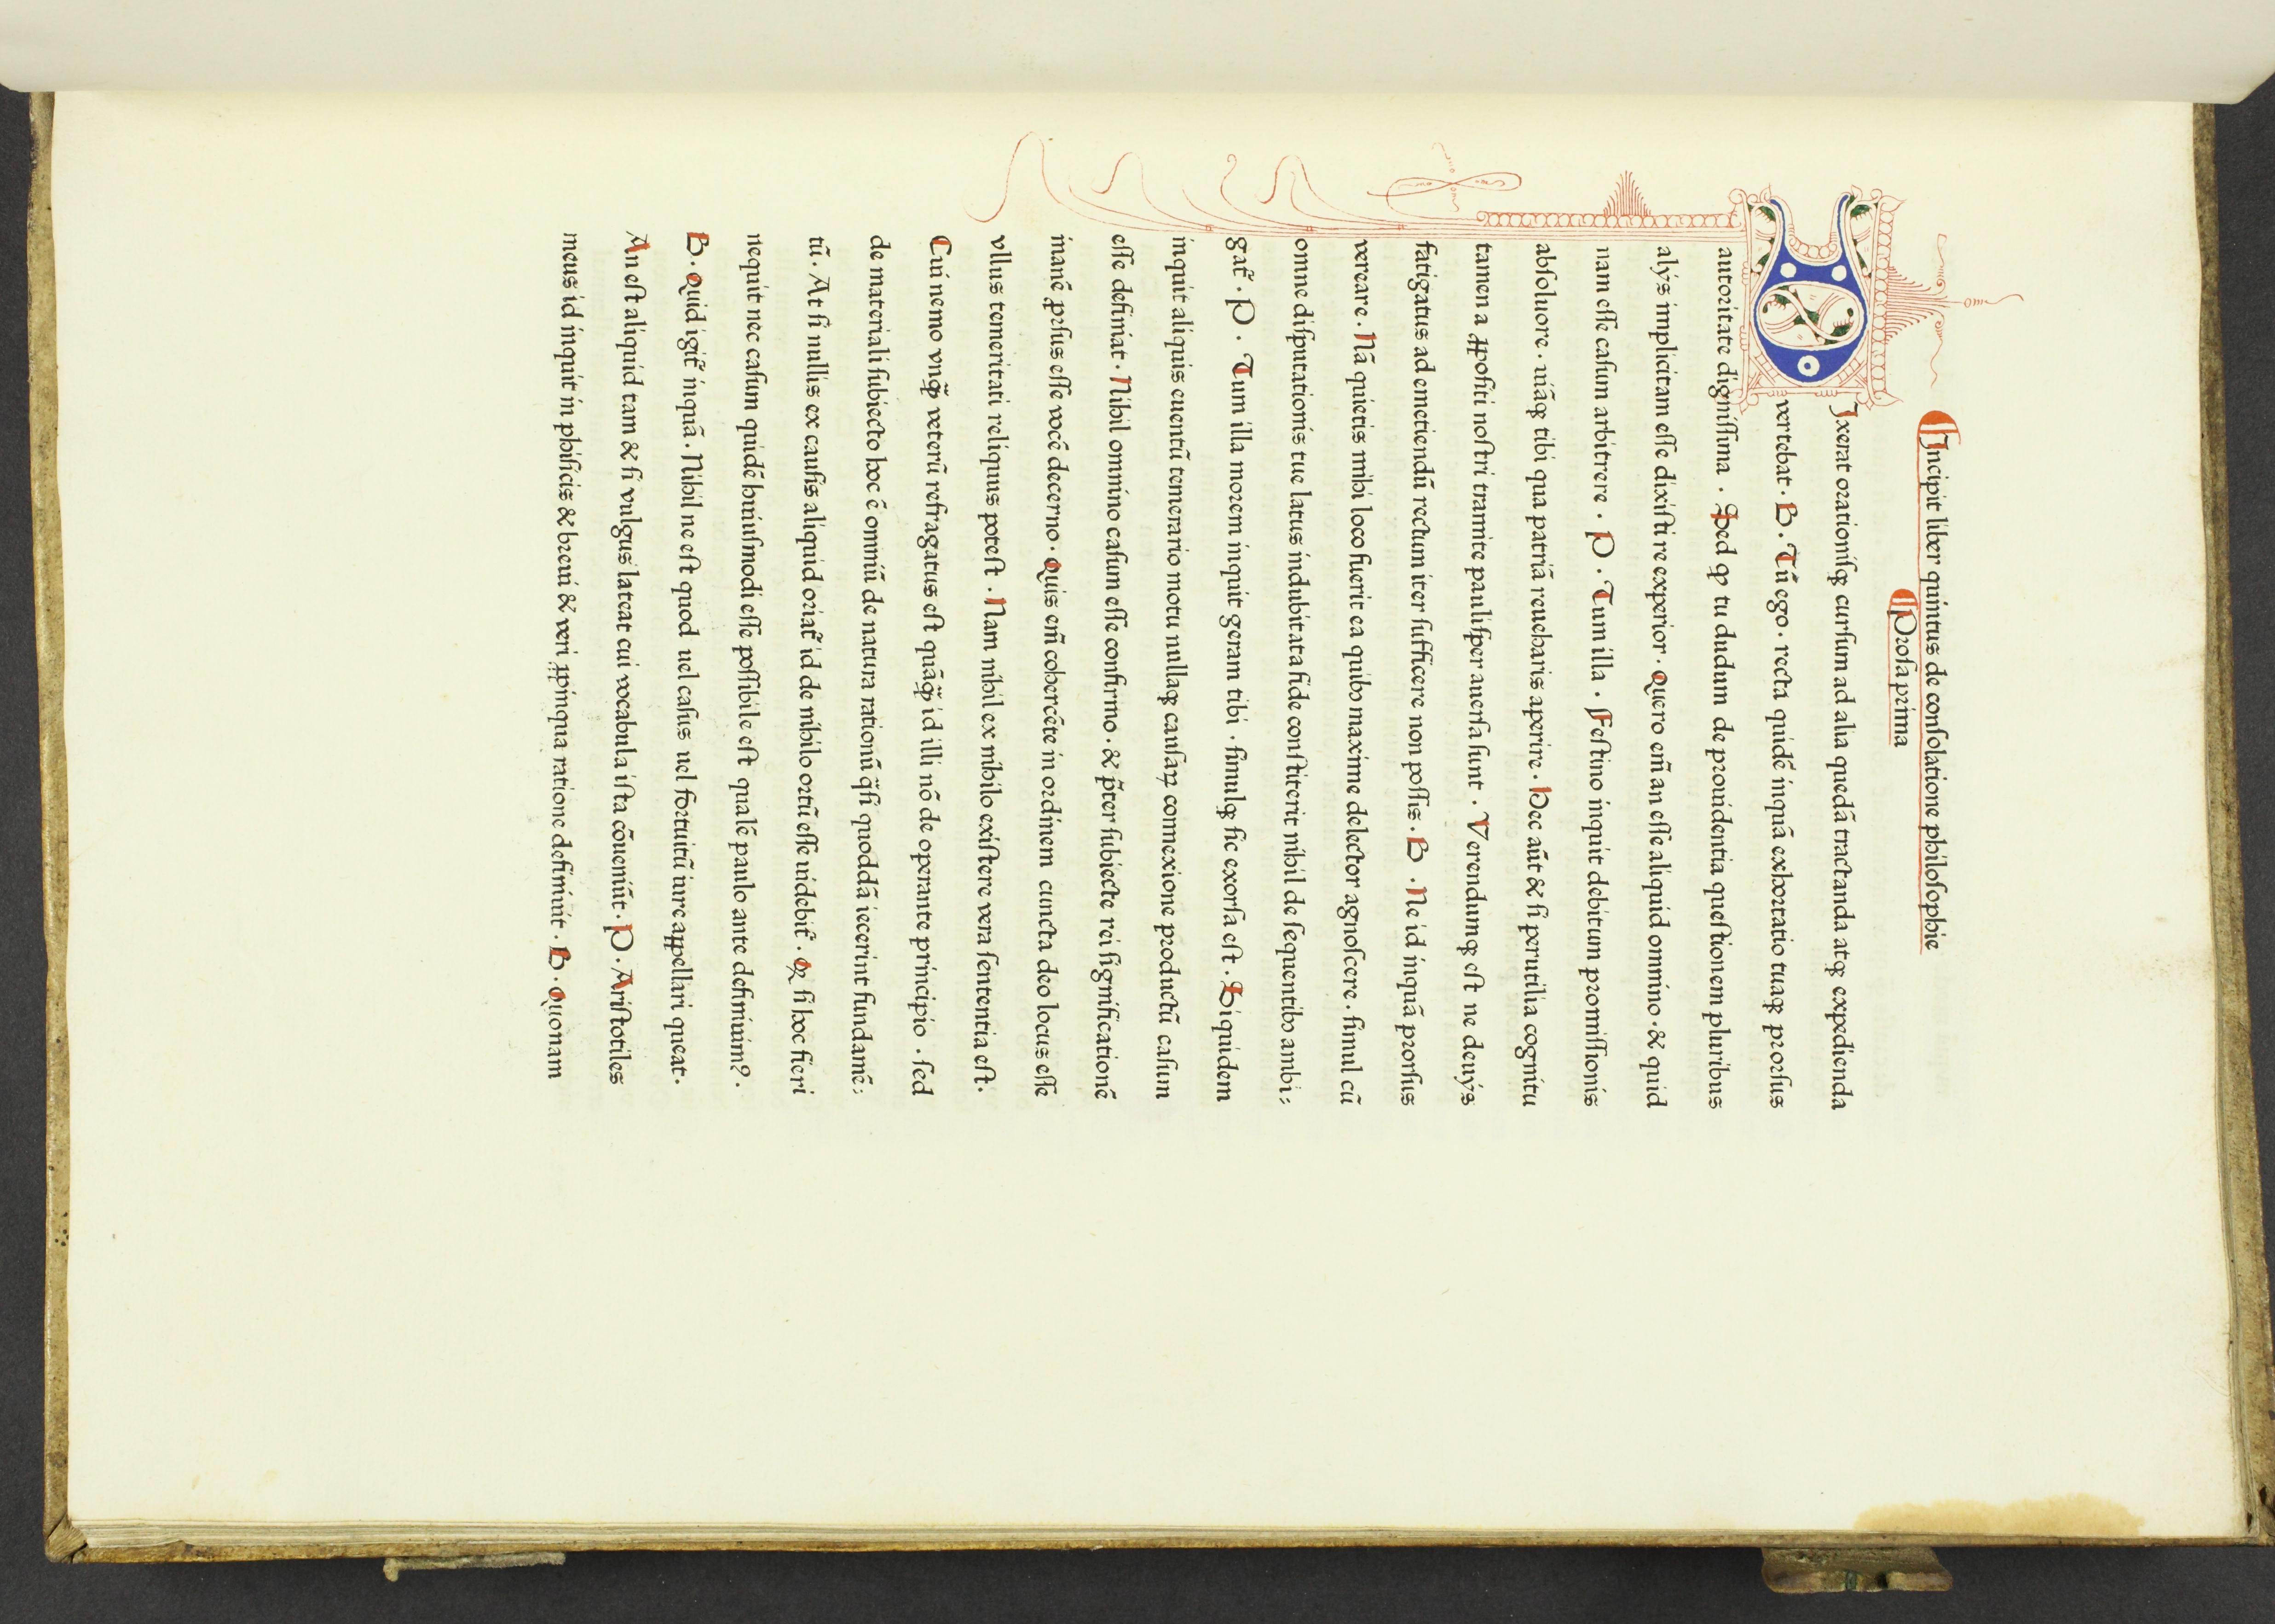 ¶Incipit liber quintus de conſolatione philoſophie
¶Proſa prima
DIxerat orationiſqꝫ curſum ad alia quedā tractanda atqꝫ expedienda
vertebat · B · Tū ego · recta quidē inquā exhortatio tuaqꝫ prorſus
autoritate digniſſima · Sed ꝙ tu dudum de prouidentia queſtionem pluribus
alijs implicitam eſſe dixiſti re experior · Quero em̄ an eſſe aliquid omnino · & quid
nam eſſe caſum arbitrere · P · Tum illa · Feſtino inquit debitum promiſſionis
abſoluore · uiāqꝫ tibi qua patriā reueharis aperire · Hec aūt & ſi perutilia cognitu
tamen a ꝓpoſiti noſtri tramite pauliſper auerſa ſunt · Verendumqꝫ eſt ne deuijs
fatigatus ad emetiendū rectum iter ſufficere non poſſis · B · Ne id inquā prorſus
vereare · Nā quietis mihi loco fuerit ea quibꝰ maxime delector agnoſcere · ſimul cū
omne diſputationis tue latus indubitata fide conſtiterit nihil de ſequentibꝰ ambi⸗
gat᷑ · P · Tum illa morem inquit geram tibi · ſimulqꝫ ſic exorſa eſt · Siquidem
inquit aliquis euentū temerario motu nullaqꝫ cauſaꝝ connexione productū caſum
eſſe definiat · Nihil omnino caſum eſſe confirmo · & p̄ter ſubiecte rei ſignificationē
inanē ꝓrſus eſſe vocē decerno · Quis em̄ cohercēte in ordinem cuncta deo locus eſſe
vllus temeritati reliquus poteſt · Nam nihil ex nihilo exiſtere vera ſententia eſt ·
Cui nemo vnꝙ̄ veterū refragatus eſt quāꝙ̄ id illi nō de operante principio · ſed
de materiali ſubiecto hoc ē omniū de natura rationū q̄ſi quoddā iecerint fundamē⸗
tū · At ſi nullis ex cauſis aliquid oriat᷑ id de nihilo ortū eſſe uidebit᷑ · Qꝫ ſi hoc fieri
nequit nec caſum quidē huiuſmodi eſſe poſſibile eſt qualē paulo ante definiuimꝰ ·
B · Quid igit᷑ inquā · Nihil ne eſt quod uel caſus uel fortuitū iure appellari queat ·
An eſt aliquid tam & ſi vulgus lateat cui vocabula iſta cōueniūt · P · Ariſtotiles
meus id inquit in phiſicis & breui & veri ꝓpinqua ratione definiuit · B · Quonam